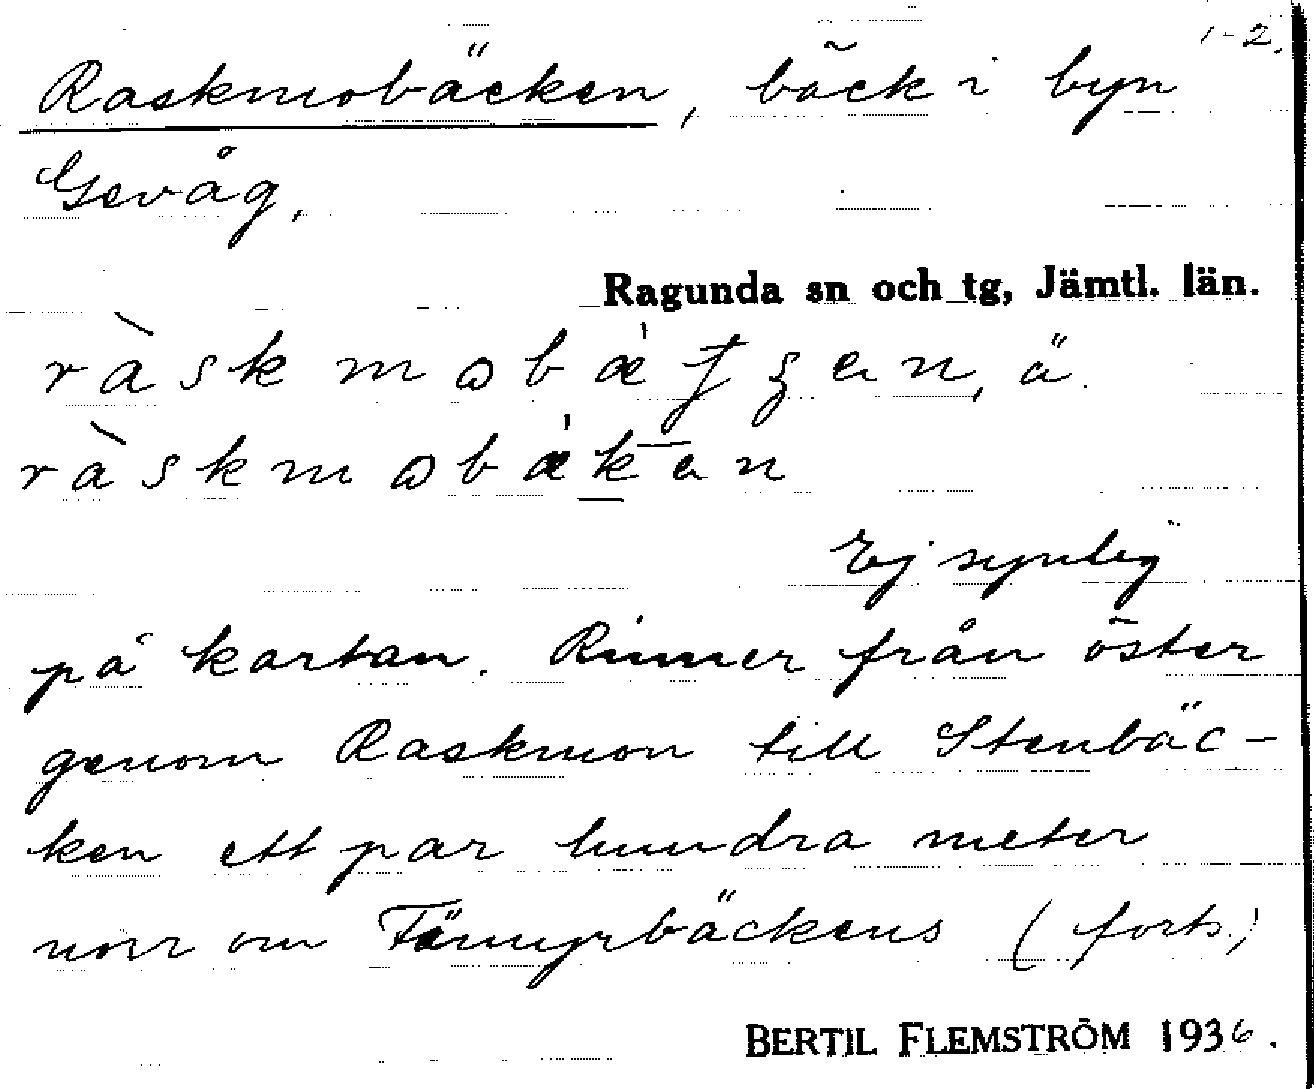 1-2.
Raskmobäcken, bäck i byn
Gevåg,
Ragunda sn och tg, Jämtl. län.
ràskmobæ̀ en, ä.
ràskmobæ̀ken
Ej synlig
på kartan. Rinner från öster
genom Raskmon till Stenbäc-
ken ett par hundra meter
norr om bäckens (forts.)
BERTIL FLEMSTRÖM 1936.